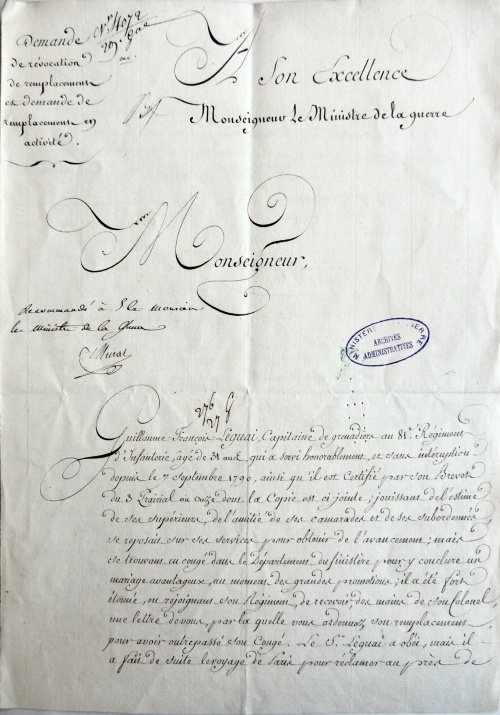 Demande
de révocation
de remplacement
et demande de
remplacement en
activité.
A
Son Excellence
Monseigneur Le Ministre de la guerre
Monseigneur,
Recommandé à
le Ministre de la Guerre
Murat
MINISTÈRE GUERRE
ARCHIVES
ADMINISTRATIVES
276
27
Guillaume François Leguai, Capitaine de grenadiers au 81e. Régiment
d'Infanterie, âgé de 31 ans qui a servi honorablement, et sans intéruption
depuis le 7 Septembre 1790, ainsi qu'il est Certifié par son Brevet
du 3 Prairial an onze dont la Copie est ci-jointe; jouissant de l'estime
de ses supérieurs, de l'amitié de ses camarades et de ses subordonnés
se reposait sur ses services pour obtenir de l'avancement; mais
se trouvant en congé dans le Département du finistère pour y conclure un
mariage avantageux, au moment des grandes promotions; il a été fort
étonné, en rejoignant son Régiment, de recevoir des mains de son Colonel
une lettre de vous, par la quelle vous ordonnez son remplacement
pour avoir outrepassé son Congé. Le Sr. Leguai a obéi, mais il
a fait de suite le voyage de Paris pour réclamer au près de